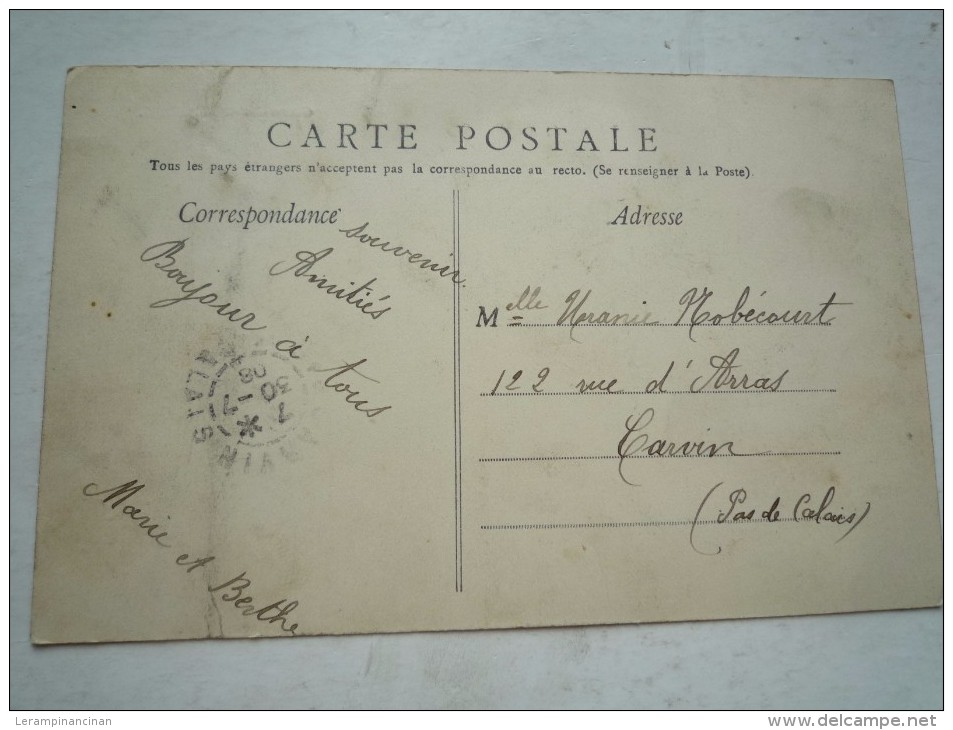 CARTE POSTALE
Tous les pays étrangers n'acceptent pas la correspondance au recto. (Se renseigner à la Poste).
Correspondance
souvenir.
Amitiés
Boujour à tous
Marie et Berthe
Adresse
Melle Uranie Nobécourt
122 rue d'Arras
Carvin
(Pas de Calais)
Lerampinancinan
www.delcampe.net